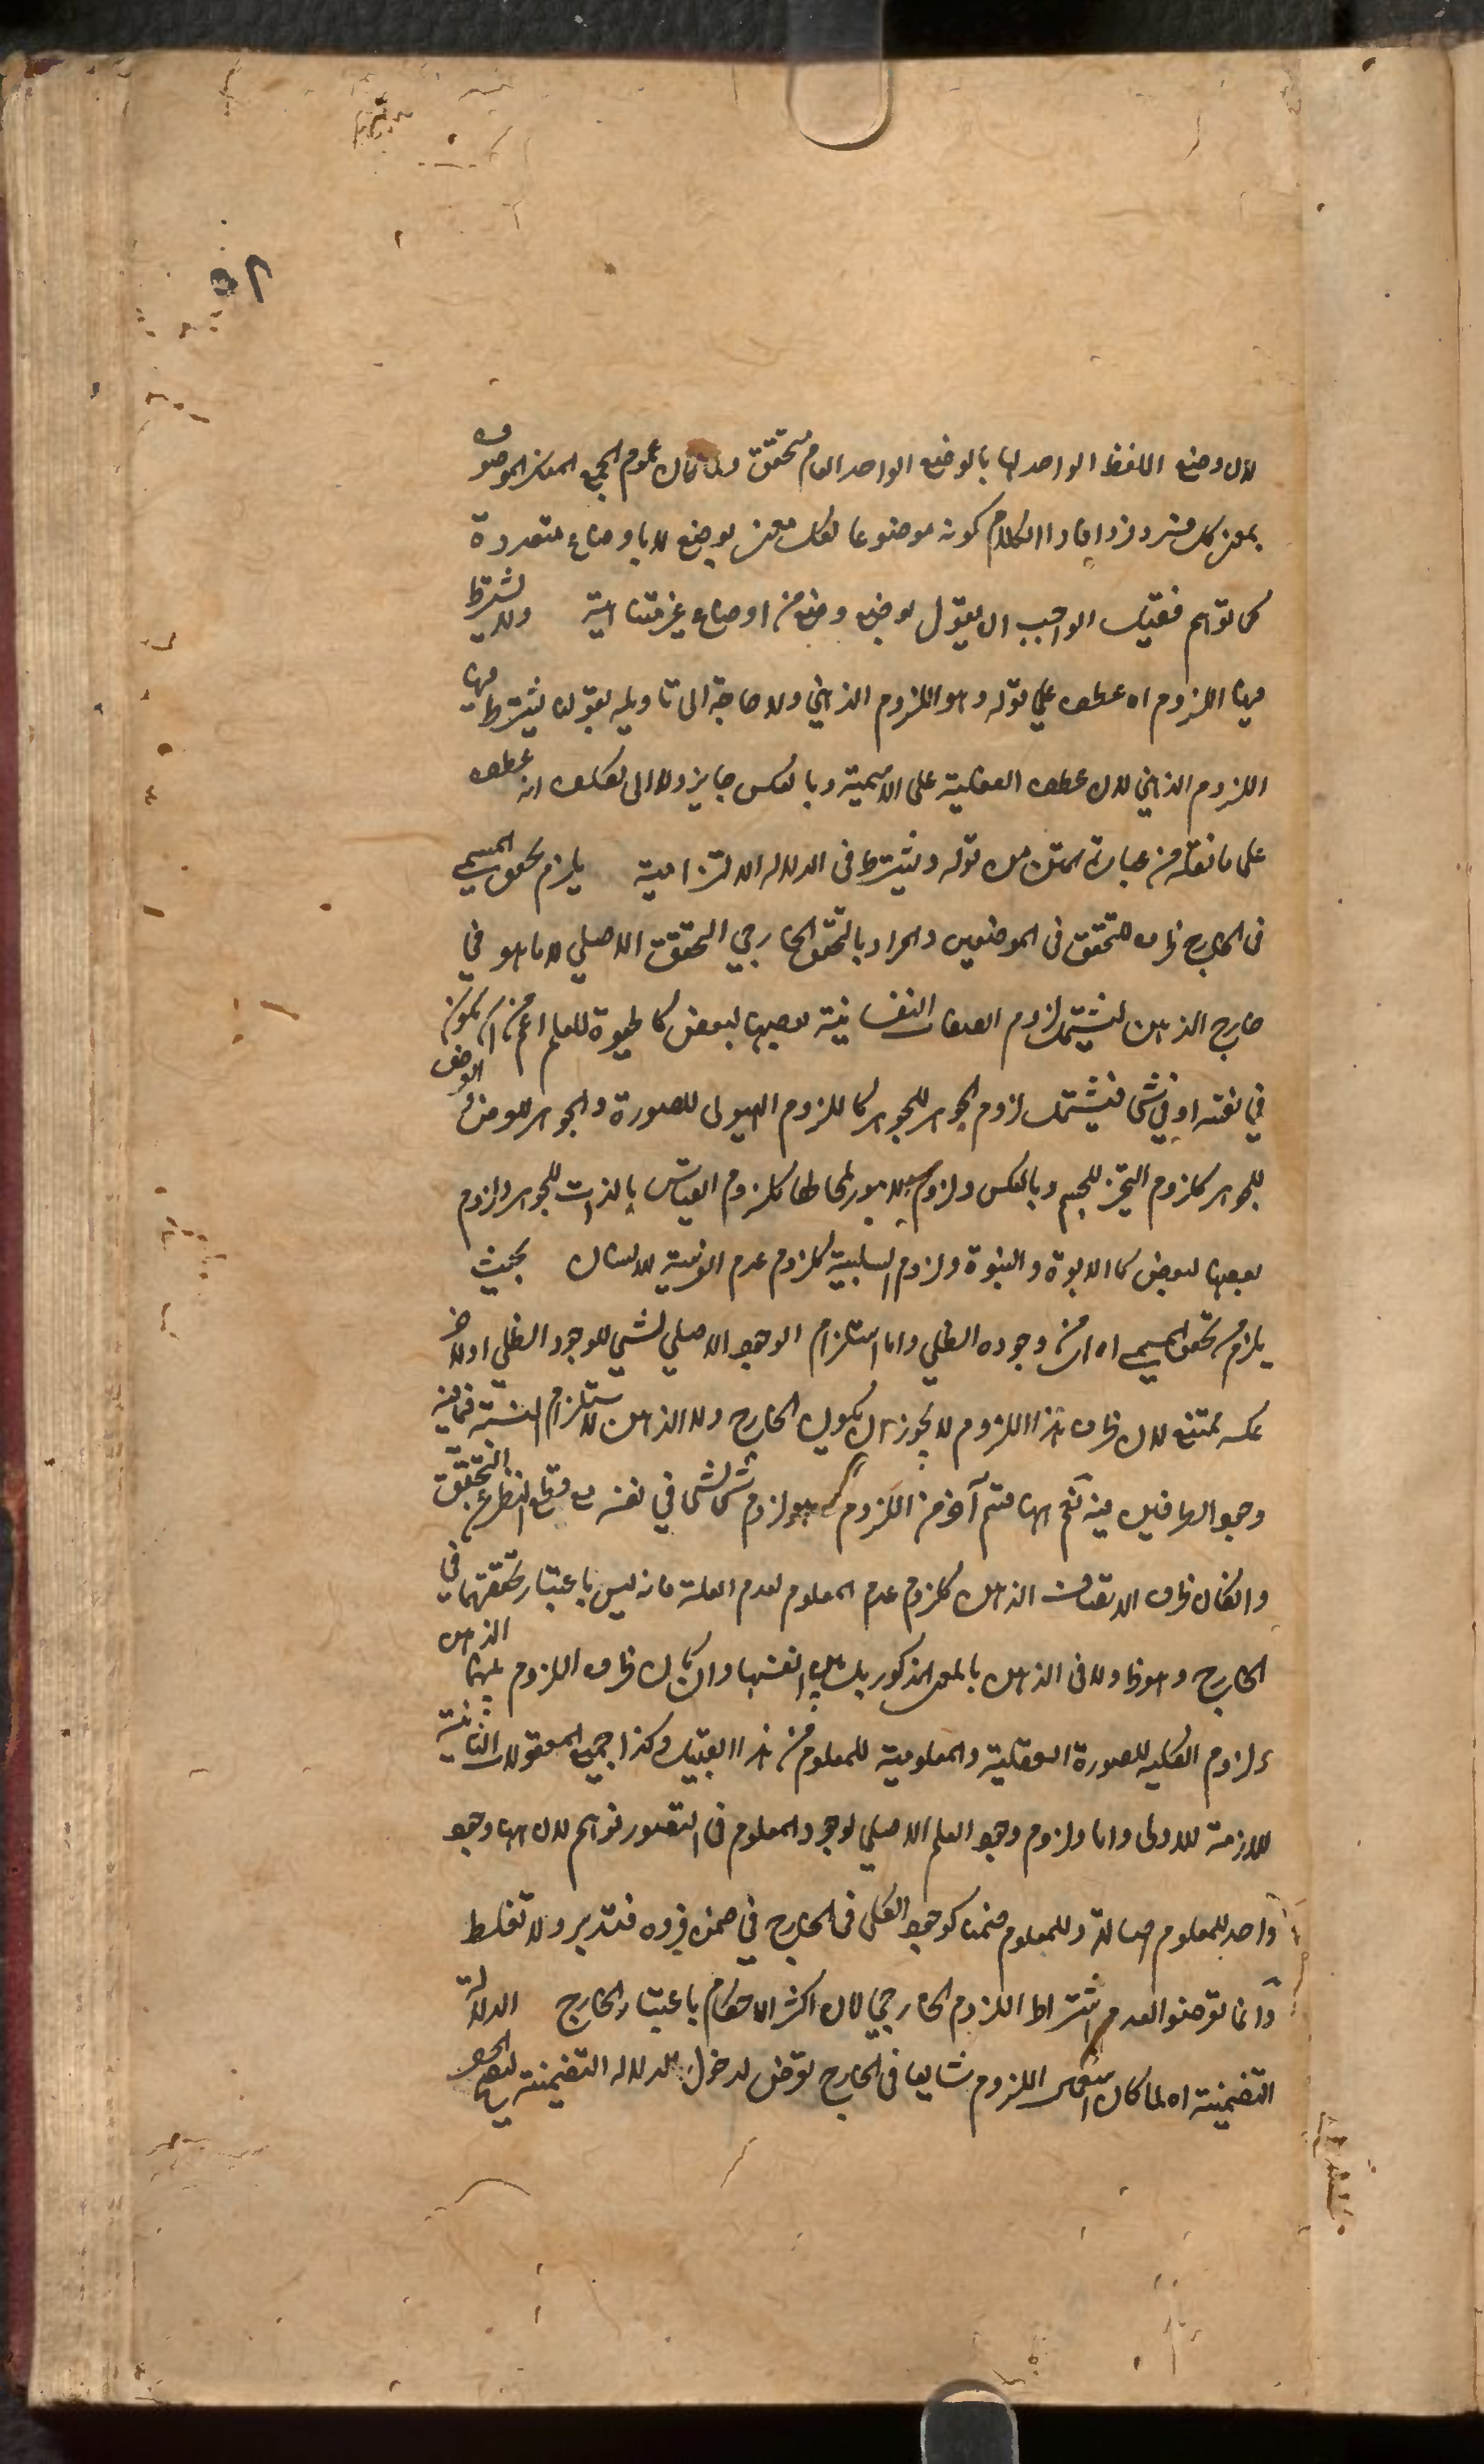 ٥٢
لان وضع اللفظ الواحد لها بالوضع الواحد العام متحقق ولما كان عموم الجمع المعنى الموضوع
بمعنى كل فرد فرد افاد الكلام كونه موضوعا لكل معنى بوضع لا باوضاع متعددة
كما توهم فقيل الواجب ان يقول بوضع وضع من اوضاع غير متناهية ولا يشترط
فيها اللزوم اه عطف على قوله وهو اللزوم الذهني ولا حاجة الى تاويله بقولنا يشترط فيها
اللزوم الذهني لان عطف الفعلية على الاسمية وبالعكس جايز ولا الى تكلف انه عطف
على ما نقله من عبارة المتن من قوله ويشترط في الدلالة الالتزامية يلزم تحقق المسمى
في الخارج ظرف للتحقق في الموضعين والمراد بالتحقق الخارجي التحقق الاصلي لا ما هو في
خارج الذهن ليشتمل لزوم الصفات النفسانية بعضها لبعض كالحيوة للعلم اعم من ان يكون
في نفسه او في شي فيشتمل لزوم الجوهر للجوهر كاللزوم الهيولى للصورة والجوهر للعرض والعرض
للجوهر كلزوم التحيز للجسم وبالعكس ولزوم الامور لمحالها كلزوم القيام بالذات للجوهر ولزوم
بعضها لبعض كالابوة والبنوة ولزوم السلبية كلزوم عدم الفرسية للانسان بحيث
يلزم من تحقق المسمى اه اي من وجوده الظلي واما استلزام الوجود الاصلي لشي للوجود الظلي او لاخر
عكسه ممتنع لان ظرف هذا اللزوم لا يجوز ان يكون الخارج ولا الذهن لاستلزام النسبة فيما فيه
وجود الطرفين فيه نعم ههنا قسم آخر من اللزوم هو لزوم شي لشي في نفسه مع قطع النظر عن التحقق
وان كان ظرف الاتصاف الذهن كلزوم عدم المعلوم لعدم العلة فانه ليس باعتبار تحققهما في
الخارج وهو ظ ولا في الذهن بالمعنى المذكور بل في انفسها وان كان ظرف اللزوم بينهما الذهن
ولزوم الكلية للصورة العقلية والمعلومية للمعلوم من هذا القبيل وكذا جميع المعقولات الثانية
اللازمة للاولى واما لزوم وجود العلم الاصلي لوجود المعلوم في التصور فوهم لان ههنا وجود
واحد للمعلوم اصالة وللمعلوم ضمنا كوجود الكلي في الخارج في ضمن فرده فتدبر ولا تغلط
وانما تعرضوا لعدم اشتراط اللزوم الخارجي لان اكثر الاحكام باعتبار الخارج الدلالة
التضمنية اه لما كان اللزوم شايعا في الخارج تعرض لدخول الدلالة التضمنية